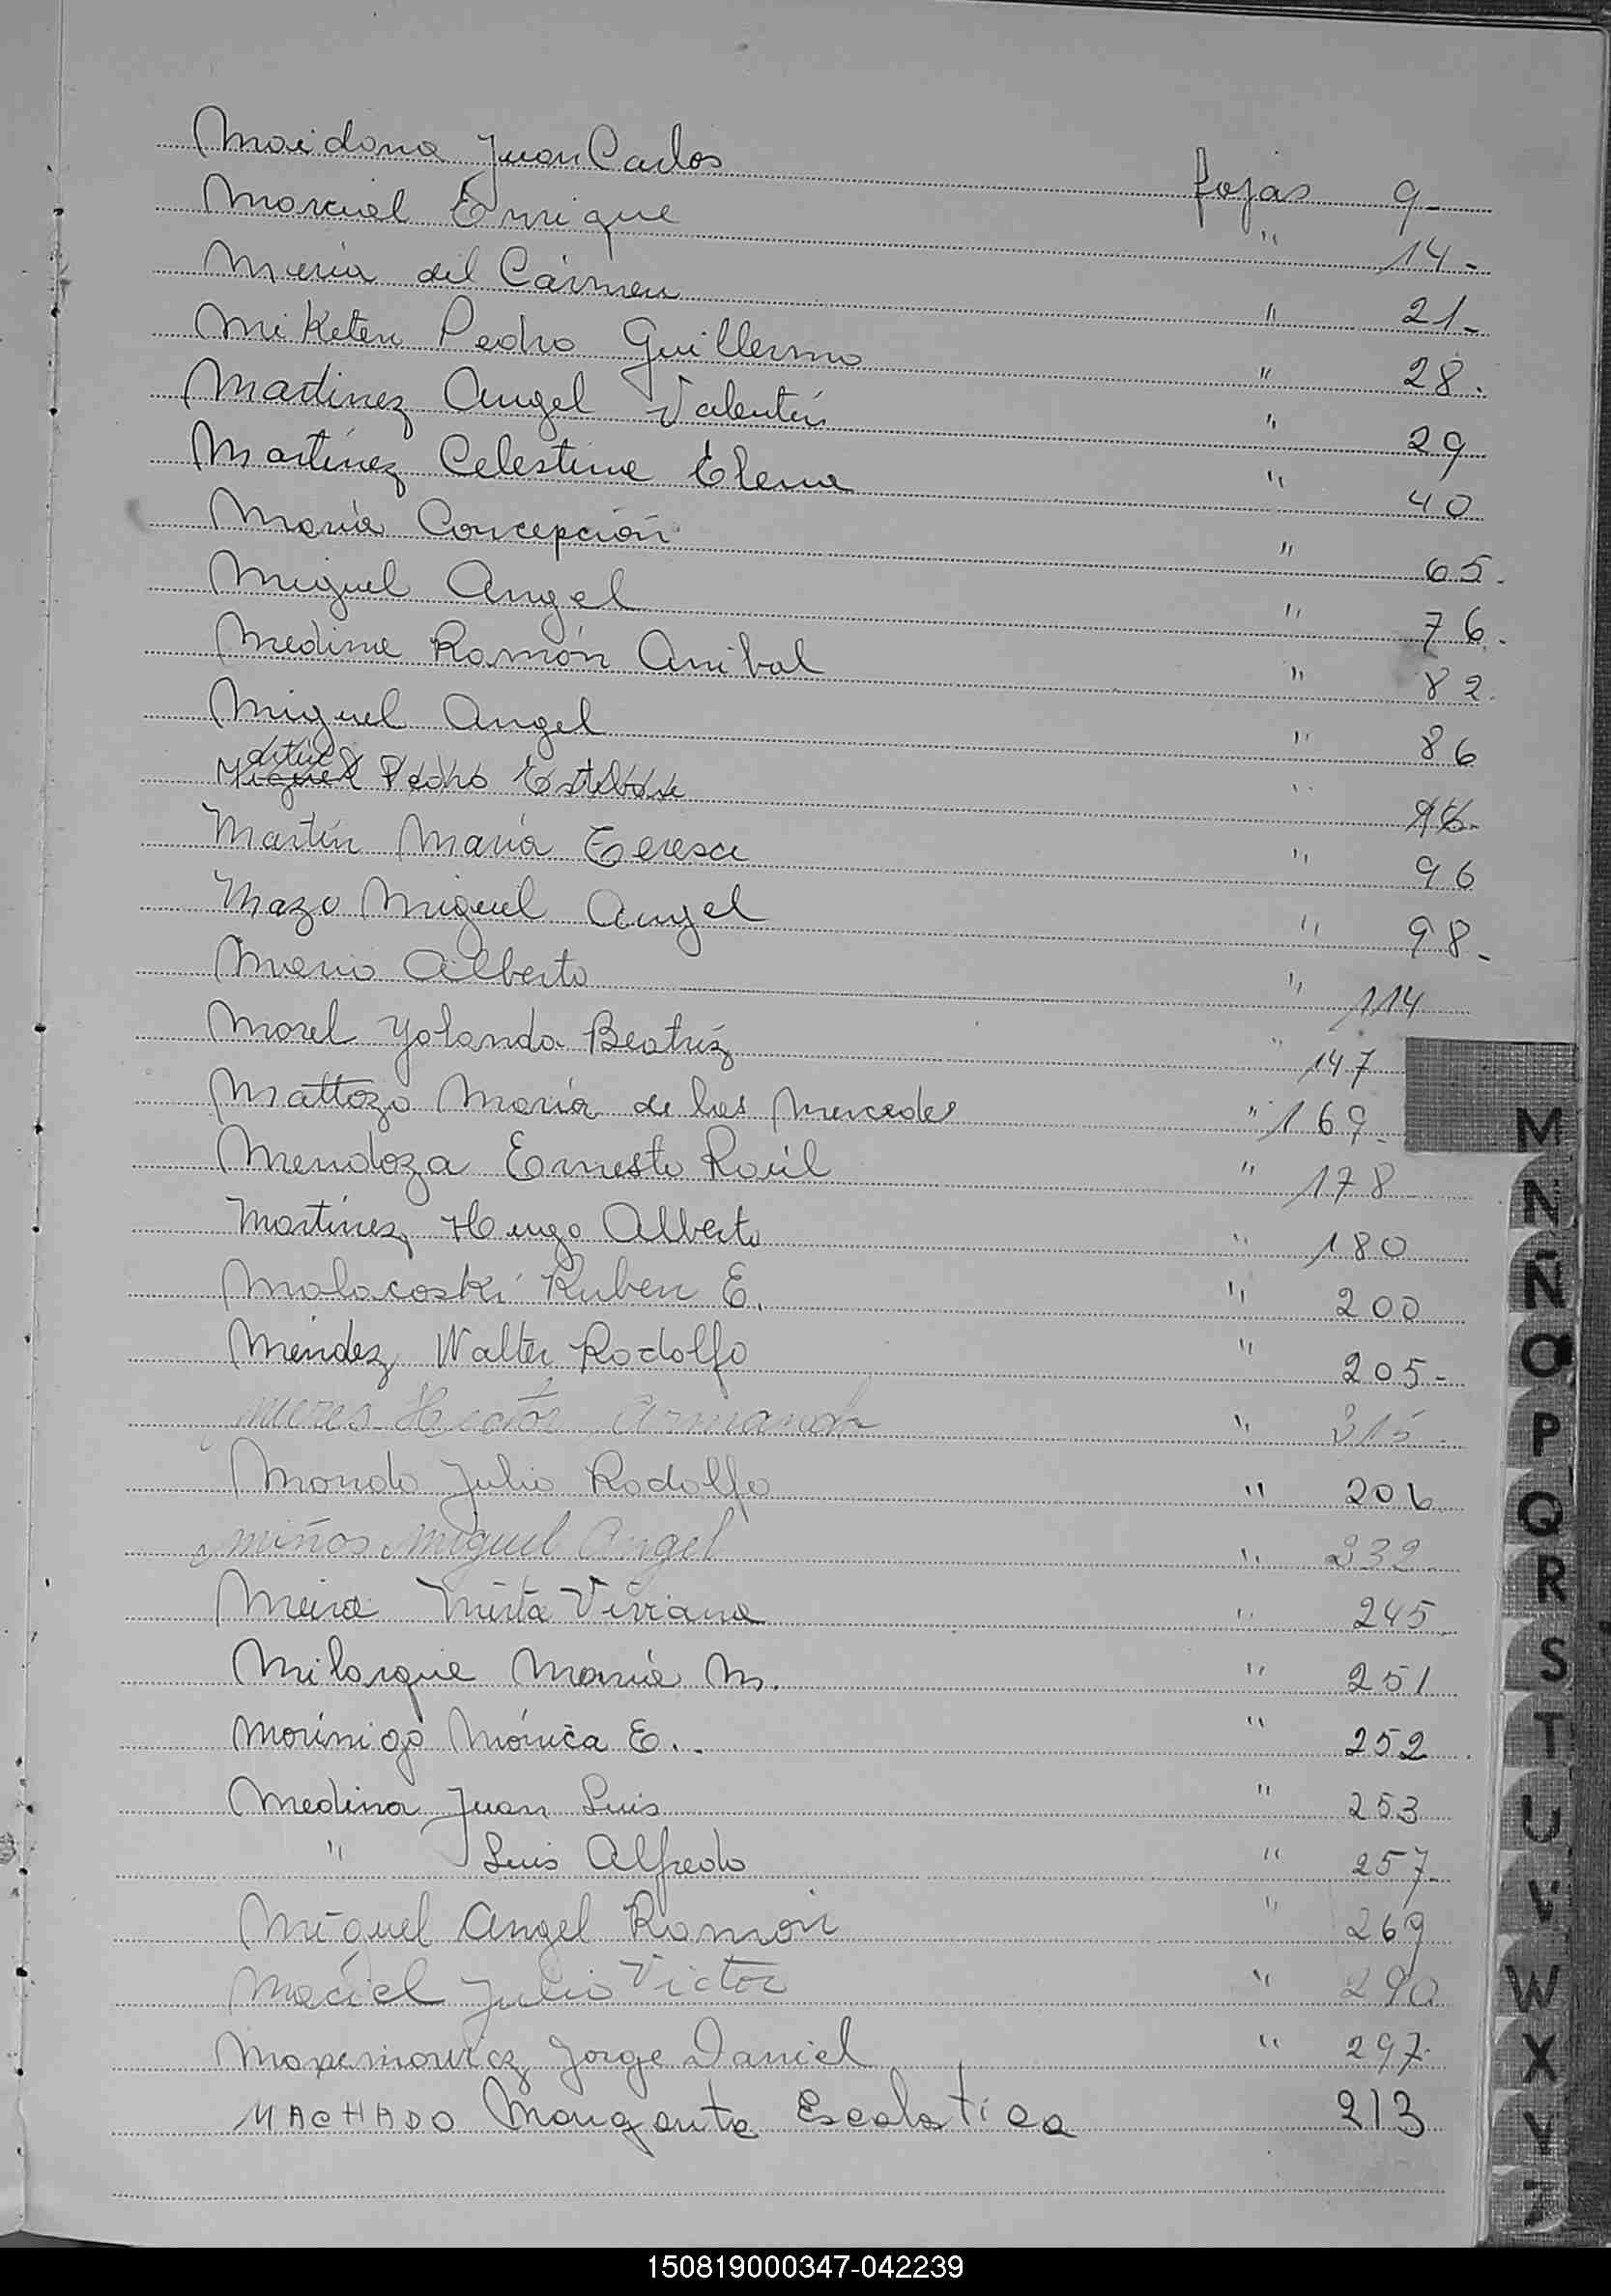 Maidana Juan Carlos fojas 9-
Marcial Enrique " 14-
María del Cármen " 21-
Miketen Pedro Guillermo " 28.
Martinez Angel Valentín " 29
Martínez Celestina Elena " 40
María Concepción " 65.
Miguel Angel " 76.
Medina Ramón Anibal " 82.
Miguel Angel " 86
Pedro Esteban "
Martín María Teresa " 96
Mazo Miguel Angel " 98-
Mario Alberto " 114
Morel Yolanda Beatríz " 147
Mattozo María de las Mercedes " 169-
Mendoza Ernesto Raúl " 178
Martínez Hugo Alberto " 180
Malacoski Ruben E. " 200
Méndez Walter Rodolfo " 205-
Mieres Hector Armando "
Mondo Julio Rodolfo " 206
Miños Miguel Angel " 232
Meira Mirta Viviana " 245
Milarque María M. " 251
Morínigo Mónica E. " 252
Medina Juan Luis " 253
" Luis Alfredo " 257-
Miguel Angel Ramón " 269
Maciel Julio Victor " 290
Jorge Daniel " 297-
MACHADO Margarita Escolastica 213
M
N
Ñ
O
P
Q
R
S
T
U
V
W
X
Y
Z
150819000347-042239